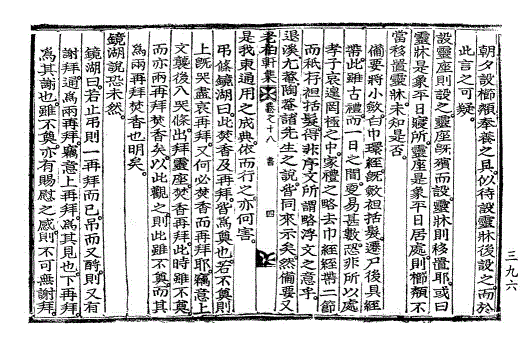 朝夕設櫛頮奉養之具以待設靈牀後設之而於
此言之可疑
設靈座則設之靈座旣殯而設靈牀則移置耶或曰
靈牀是象平日寢所靈座是象平日居處則櫛頮不
當移置靈牀未知是否
備要將小斂白巾環絰旣斂袒括髮遷尸後具絰
帶此雖古禮而一日之間變易甚數恐非所以處
孝子哀遑罔極之中家禮之略去巾絰絰帶二節
而秖行袒括髮得非序文所謂略浮文之意乎
退溪尤菴陶菴諸先生之說皆同來示矣然備要又
老柏軒集 卷之十八 書 四
是我東通用之成典依而行之亦何害
吊條鏡湖曰此焚香及再拜皆爲奠也若不奠則
上旣哭盡哀再拜又何必焚香而再拜耶竊意上
文襲後入哭條出拜靈座焚香再拜此時雖不奠
而亦兩再拜焚香矣以此觀之則此雖不奠而其
爲兩再拜焚香也明矣
鏡湖說恐未然
鏡湖曰若止弔則一再拜而已吊而又酹則又有
謝拜通爲兩再拜竊意上再拜爲其見也下再拜
爲其謝也雖不奠亦有賜慰之感則不可無謝拜
三九六